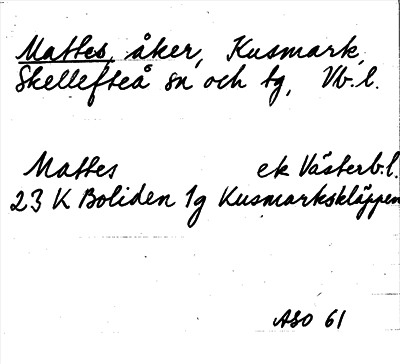 Mattes, åker, Kusmark,
Skellefteå sn och tg, Vb. l.
Mattes ek Västerb.l.
23 K Boliden 1g Kusmarkskläppen
ASO 61